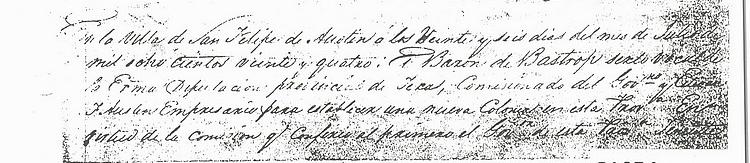 n la Villa de San Felipe de Austin á los Veinte y seis dias del mes de Julio de
mil ocho cientos veinte y quatro: El Baron de Bastrop sesto vocal de
la Exma Diputacion provincial de Texas, Comisionado del Gov.no y Estevan
F. Austin Empresario para establecer una nueva Colonia en esta Prov.
de la comision q.e Confirió al primero el Gov.